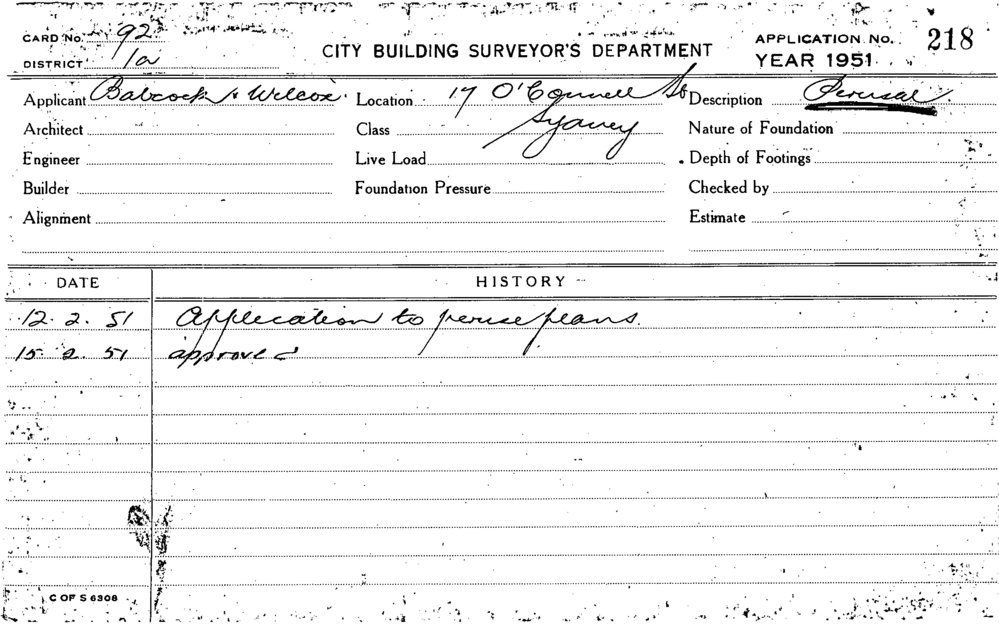 CARD No. 92
DISTRICT 1a
CITY BUILDING SURVEYOR'S DEPARTMENT
APPLICATION No. 218
YEAR 1951
Applicant Babcock & Wilcox. Location 17 O'Connell St Description Perusal.
Sydney
Architect Class Nature of Foundation
Engineer Live Load Depth of Footings
Builder Foundation Pressure Checked by
Alignment Estimate
DATE HISTORY
12. 2. 51 Application to peruse plans.
15. 2. 51 approved
C OF S 6308